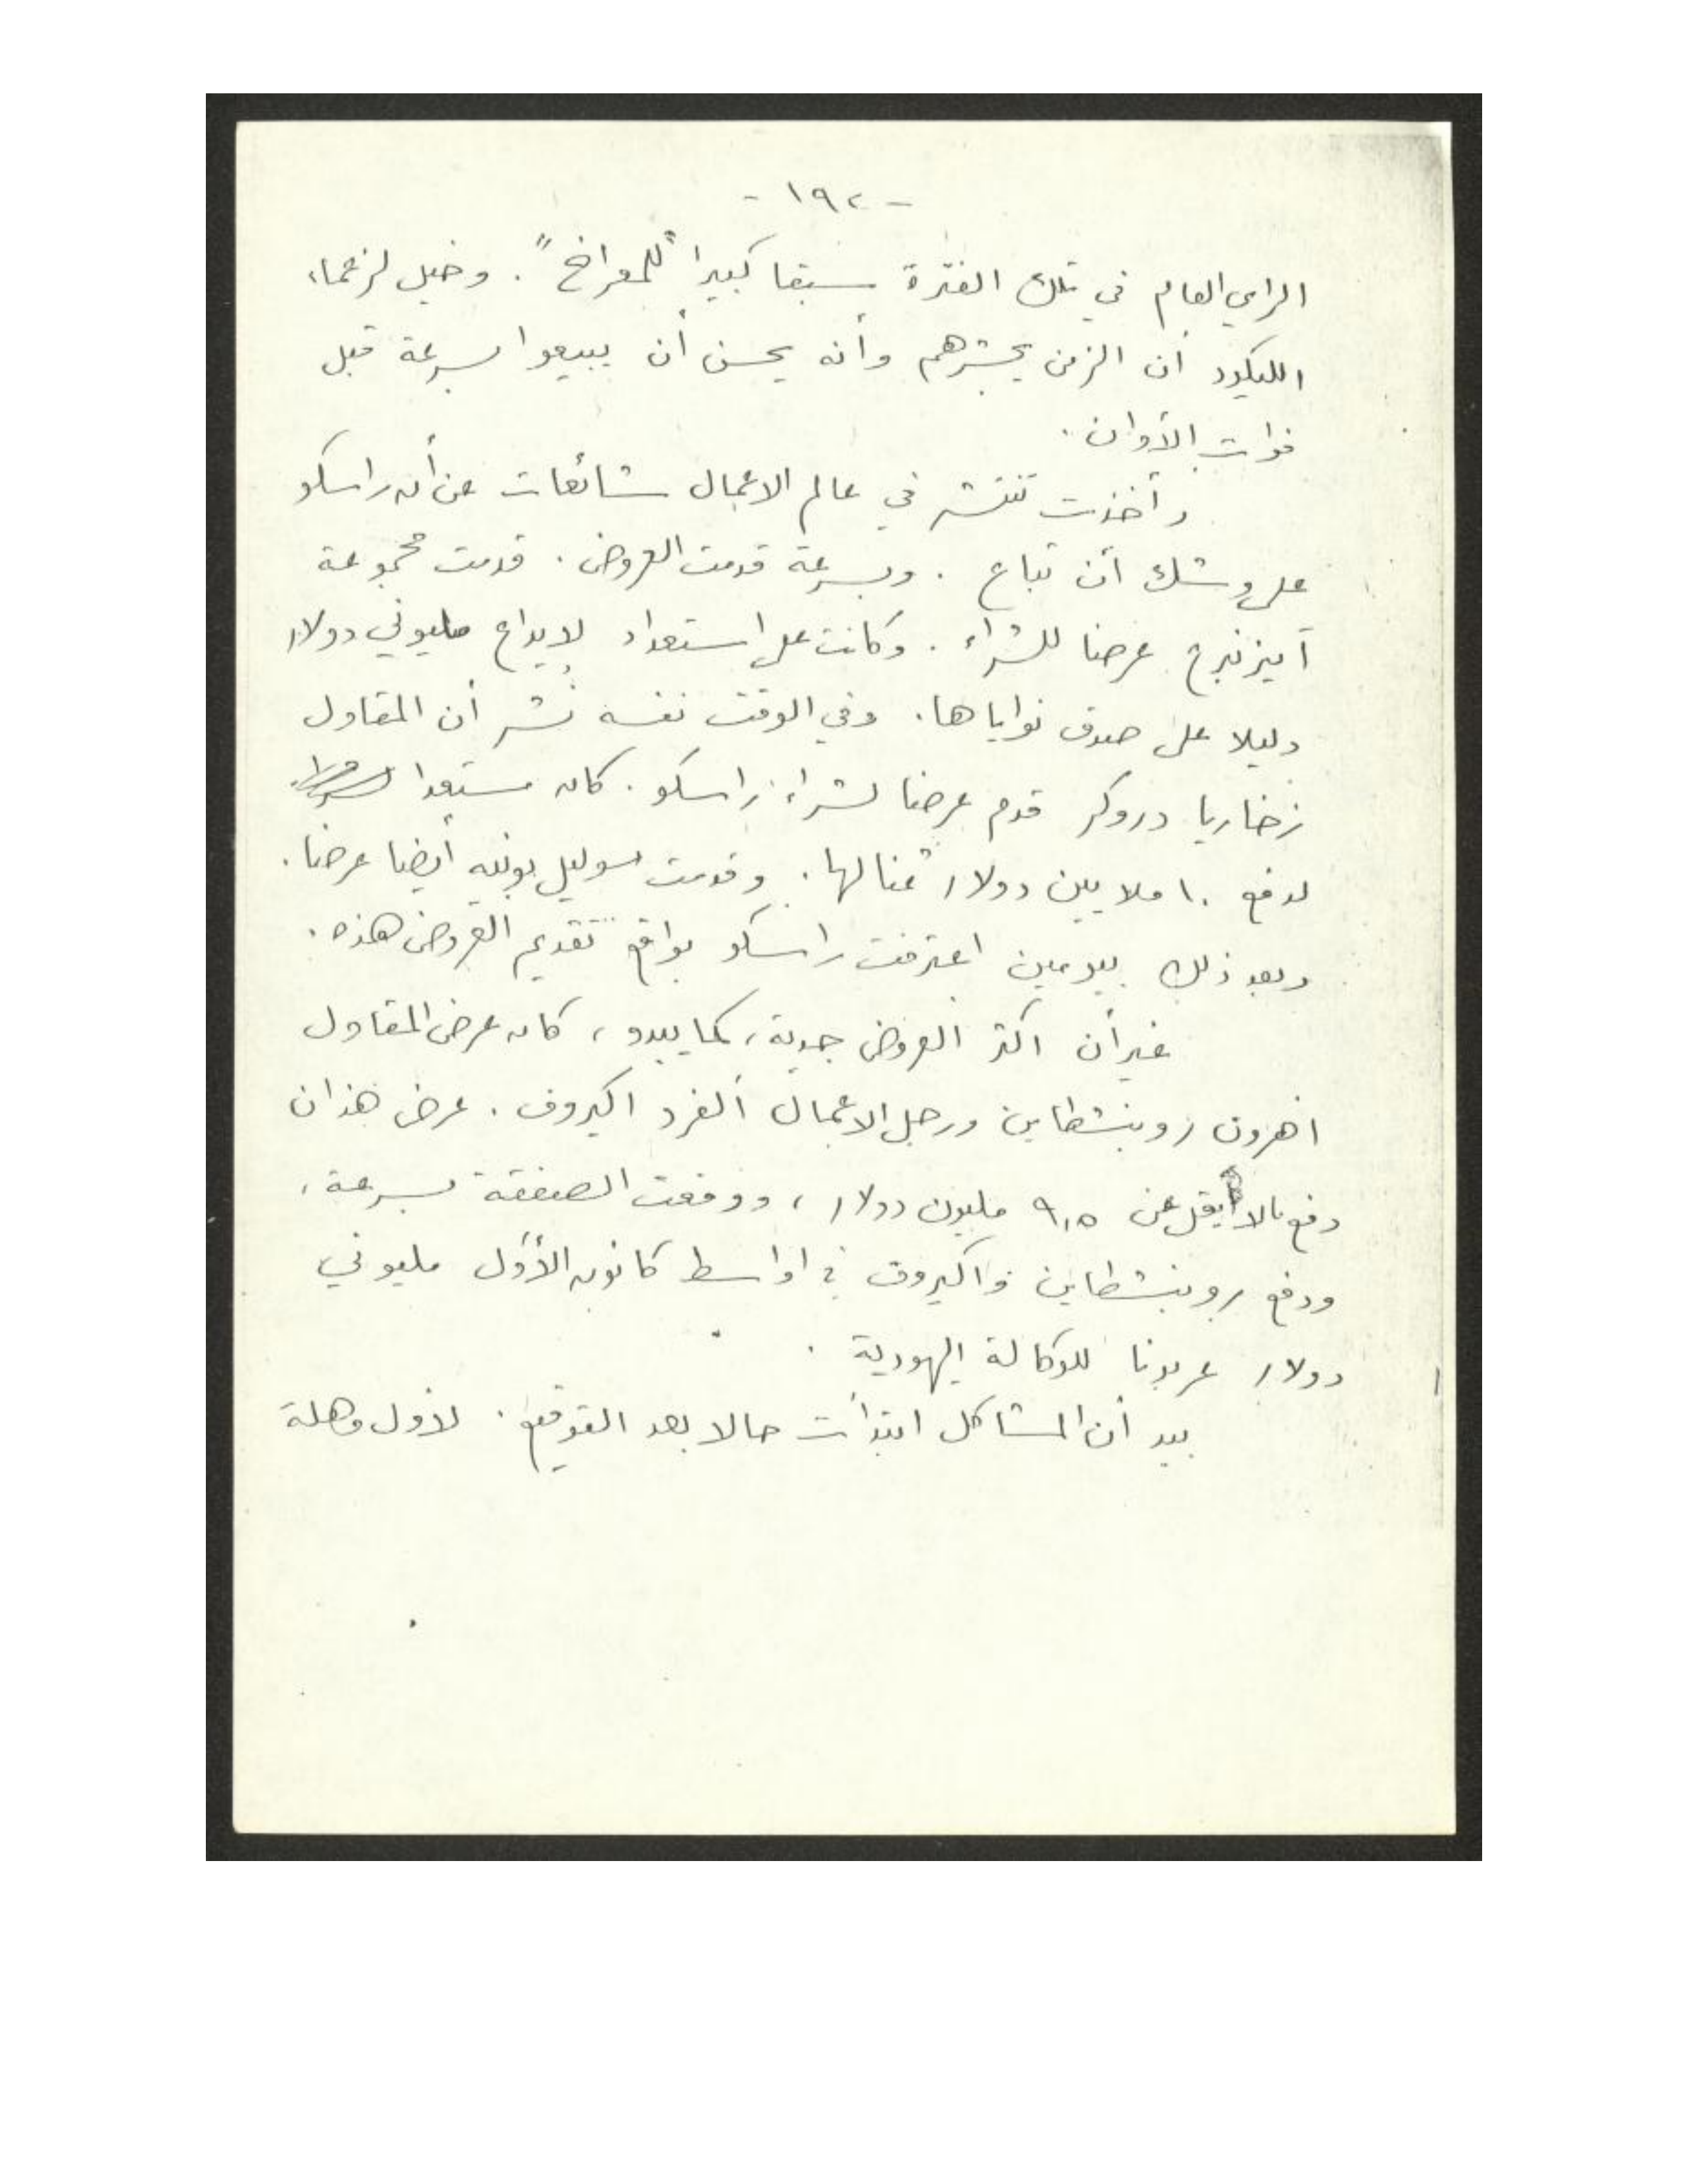 - ١٩٢ -
الراي العام في تلك الفترة سبقا كبيرا "للمعراخ". وخيل لزعماء
الليكود أن الزمن يحشرهم وأنه يحسن أن يبيعوا بسرعة قبل
فوات الأوان.
وأخذت تنتشر في عالم الاعمال شائعات عن أن راسكو
على وشك أن تباع . وبسرعة قدمت العروض . قدمت مجموعة
آيزنبرغ عرضا للشراء . وكانت على استعداد لايداع مليوني دولار
دليلا على صدق نواياها. وفي الوقت نفسه نُشر أن المقاول
زخاريا دروكر قدم عرضا لشراء راسكو. كان مستعدا
لدفع ١٠ ملايين دولار ثمنا لها . وقدمت سوليل بونيه أيضا عرضا.
وبعد ذلك بيومين اعترفت راسكو بواقع تقديم العروض هذه .
غير أن اكثر العروض جدية، كما يبدو، كان عرض المقاول
اهرون روبنشطاين ورجل الاعمال ألفرد اكيروف . عرض هذان
دفع مالا يقل عن ٩,٥ مليون دولار ، ووقعت الصفقة بسرعة ،
ودفع روبنشطاين واكيروف في اواسط كانون الأوّل مليوني
دولار عربونا للوكالة اليهودية .
بيد أن المشاكل ابتدأت حالا بعد التوقيع . لأول وهلة